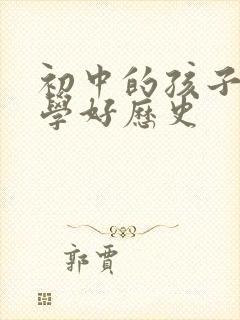 初中的孩子
學好歷史
郭賈